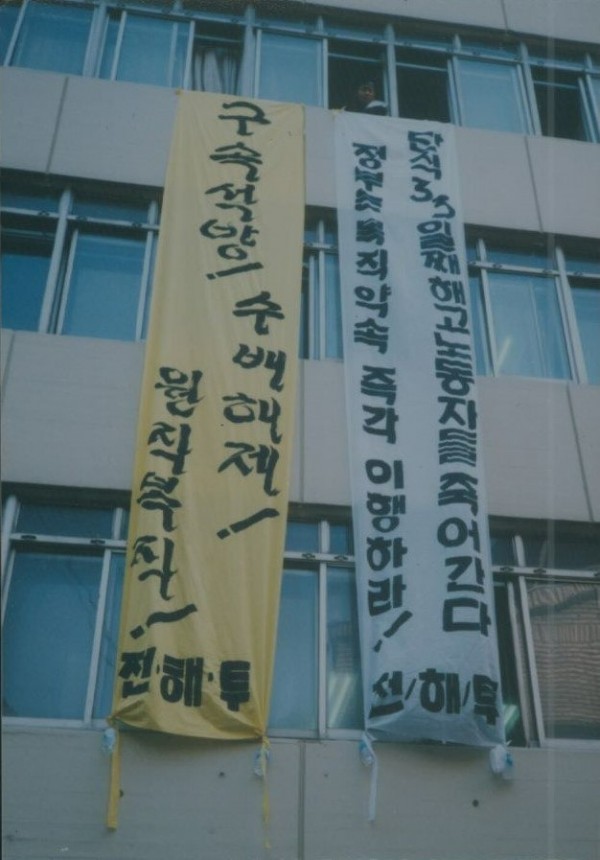 구속석방! 수배해제!
원직복직!
전·해·투
단식 33일째 해고노동자들 죽어간다
정부는 복직약속 즉각 이행하라!
전/해/투